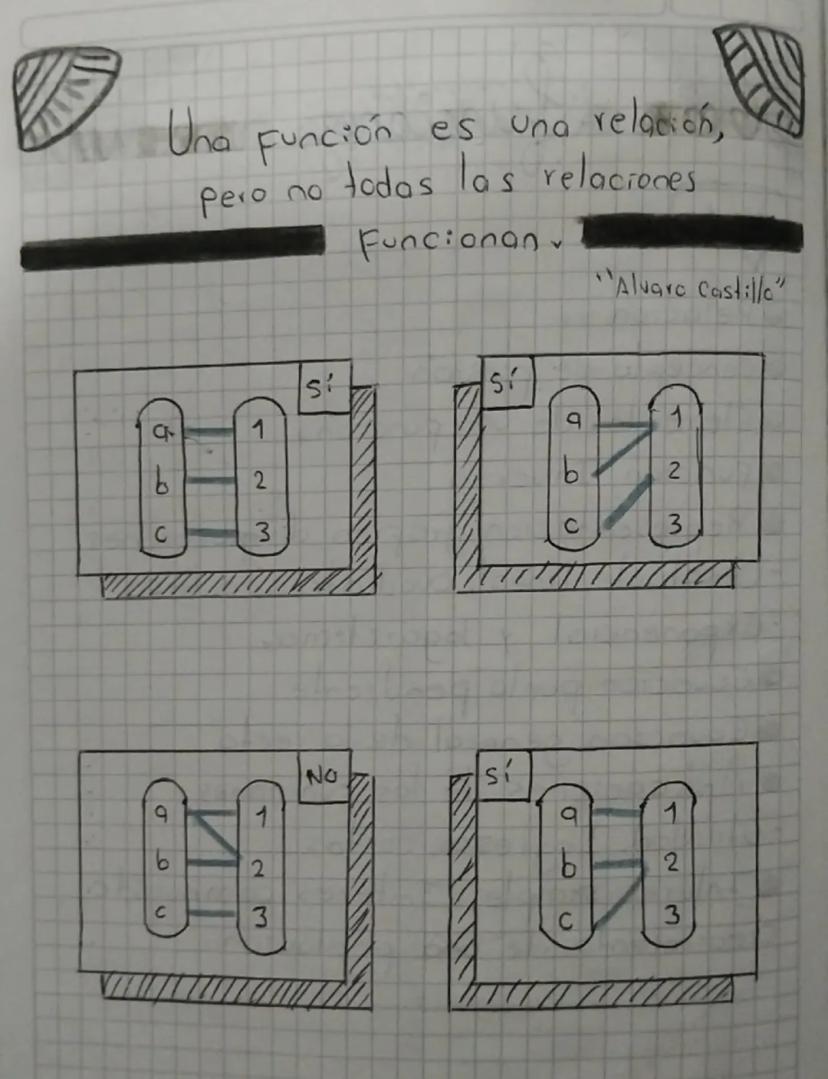 Una Función es una relación,
pero no todas las relaciones
Funcionan.
"Alvaro Castillo"
Sí
a 1
b 2
c 3
Sí
a 1
b 2
c 3
No
a 1
b 2
c 3
Sí
a 1
b 2
c 3